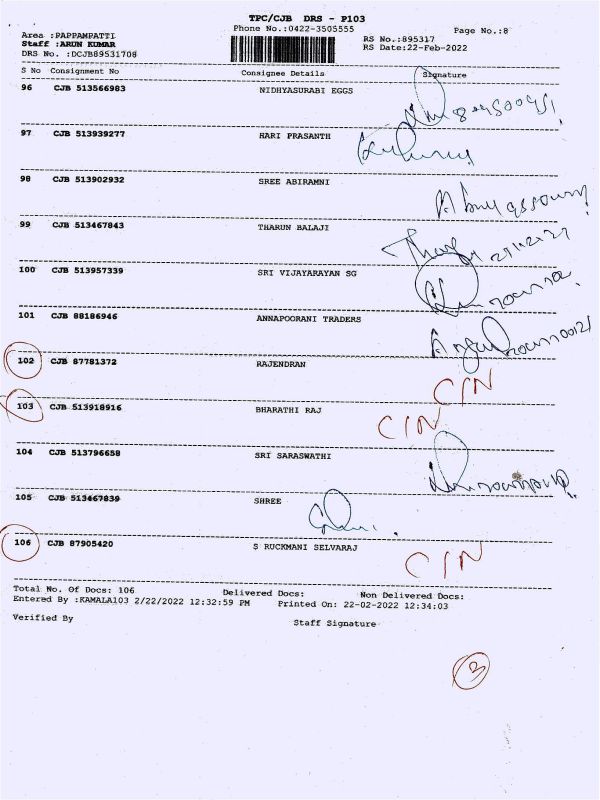 TPC/CJB DRS - P103
Phone No.:0422-3505555 Page No.:8
Area :PAPPAMPATTI RS No.:895317
Staff :ARUN KUMAR RS Date:22-Feb-2022
DRS No. :DCJB89531708
S No Consignment No Consignee Details Signature
96 CJB 513566983 NIDHYASURABI EGGS
97 CJB 513939277 HARI PRASANTH
98 CJB 513902932 SREE ABIRAMNI
99 CJB 513467843 THARUN BALAJI
100 CJB 513957339 SRI VIJAYARAYAN SG
101 CJB 88186946 ANNAPOORANI TRADERS
102 CJB 87781372 RAJENDRAN CIN
103 CJB 513918916 BHARATHI RAJ CIN
104 CJB 513796658 SRI SARASWATHI
105 CJB 513467839 SHREE
106 CJB 87905420 S RUCKMANI SELVARAJ CIN
Total No. Of Docs: 106 Delivered Docs: Non Delivered Docs:
Entered By :KAMALA103 2/22/2022 12:32:59 PM Printed On: 22-02-2022 12:34:03
Verified By Staff Signature
3